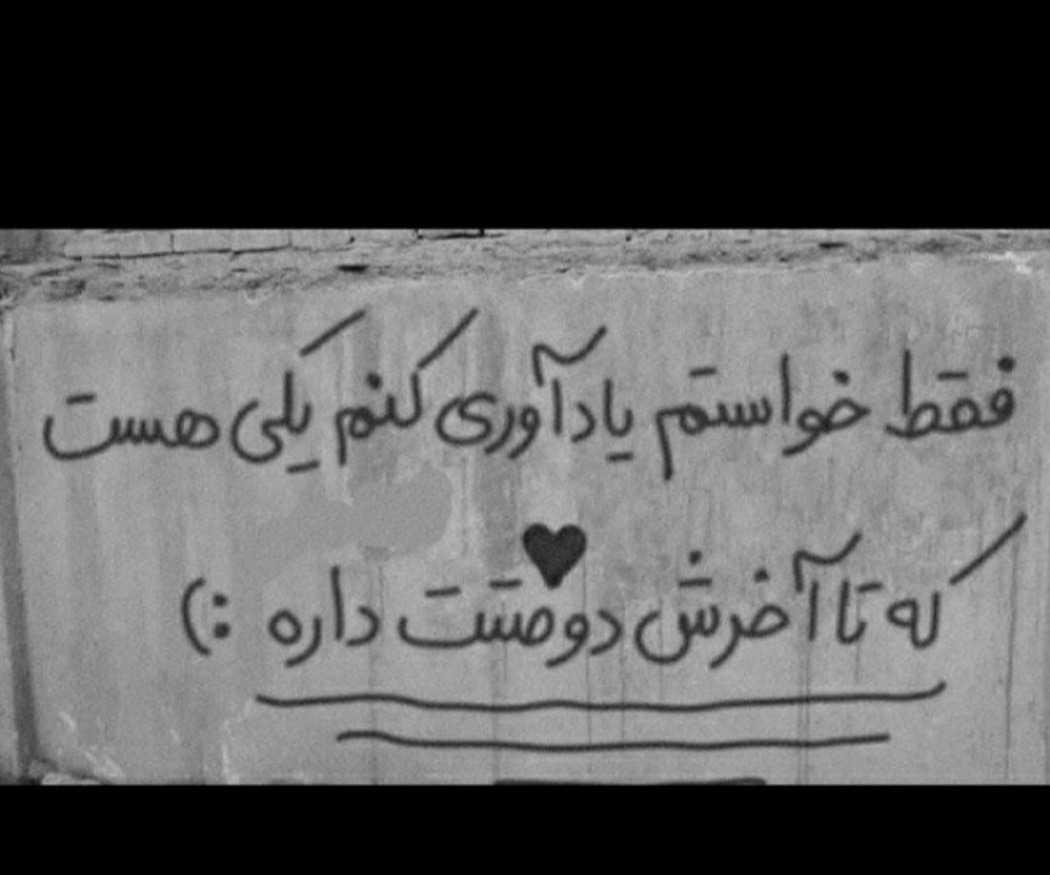 فقط خواستم یادآوری کنم یکی هست
که تا آخرش دوصتت داره :)